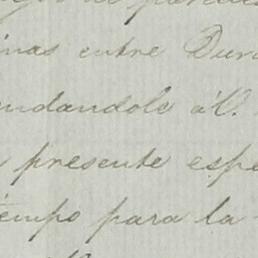 inas entre Dur
ndandole á V.
presente espe
tiempo para la